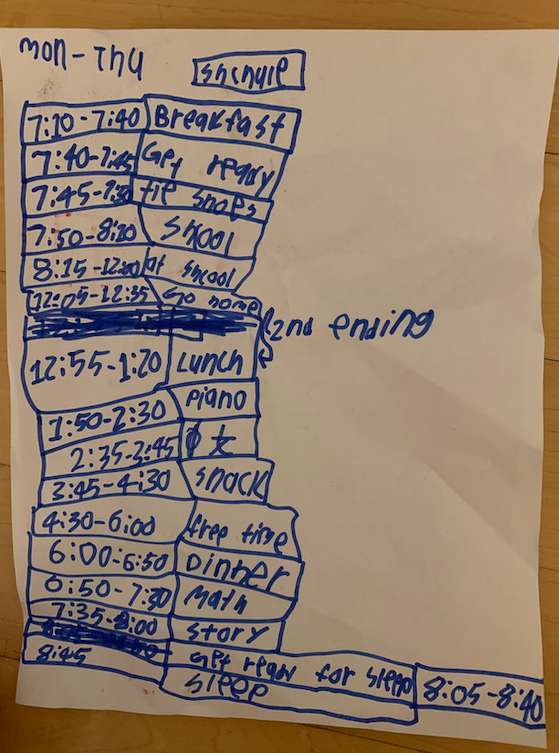 Mon-Thu
Shchule
7:10-7:40 Breakfast
7:40-7:45 Get ready
7:45-7:50 tie shoes
7:50-8:20 Shool
8:15-12:00 at shcool
12:05-12:35 Go home
2nd ending
12:55-1:20 Lunch
1:50-2:30 Piano
2:35-3:45 中文
3:45-4:30 snack
4:30-6:00 free time
6:00-6:50 Dinner
6:50-7:30 Math
7:35-8:00 Story
Get ready for sleep 8:05-8:40
8:45 sleep